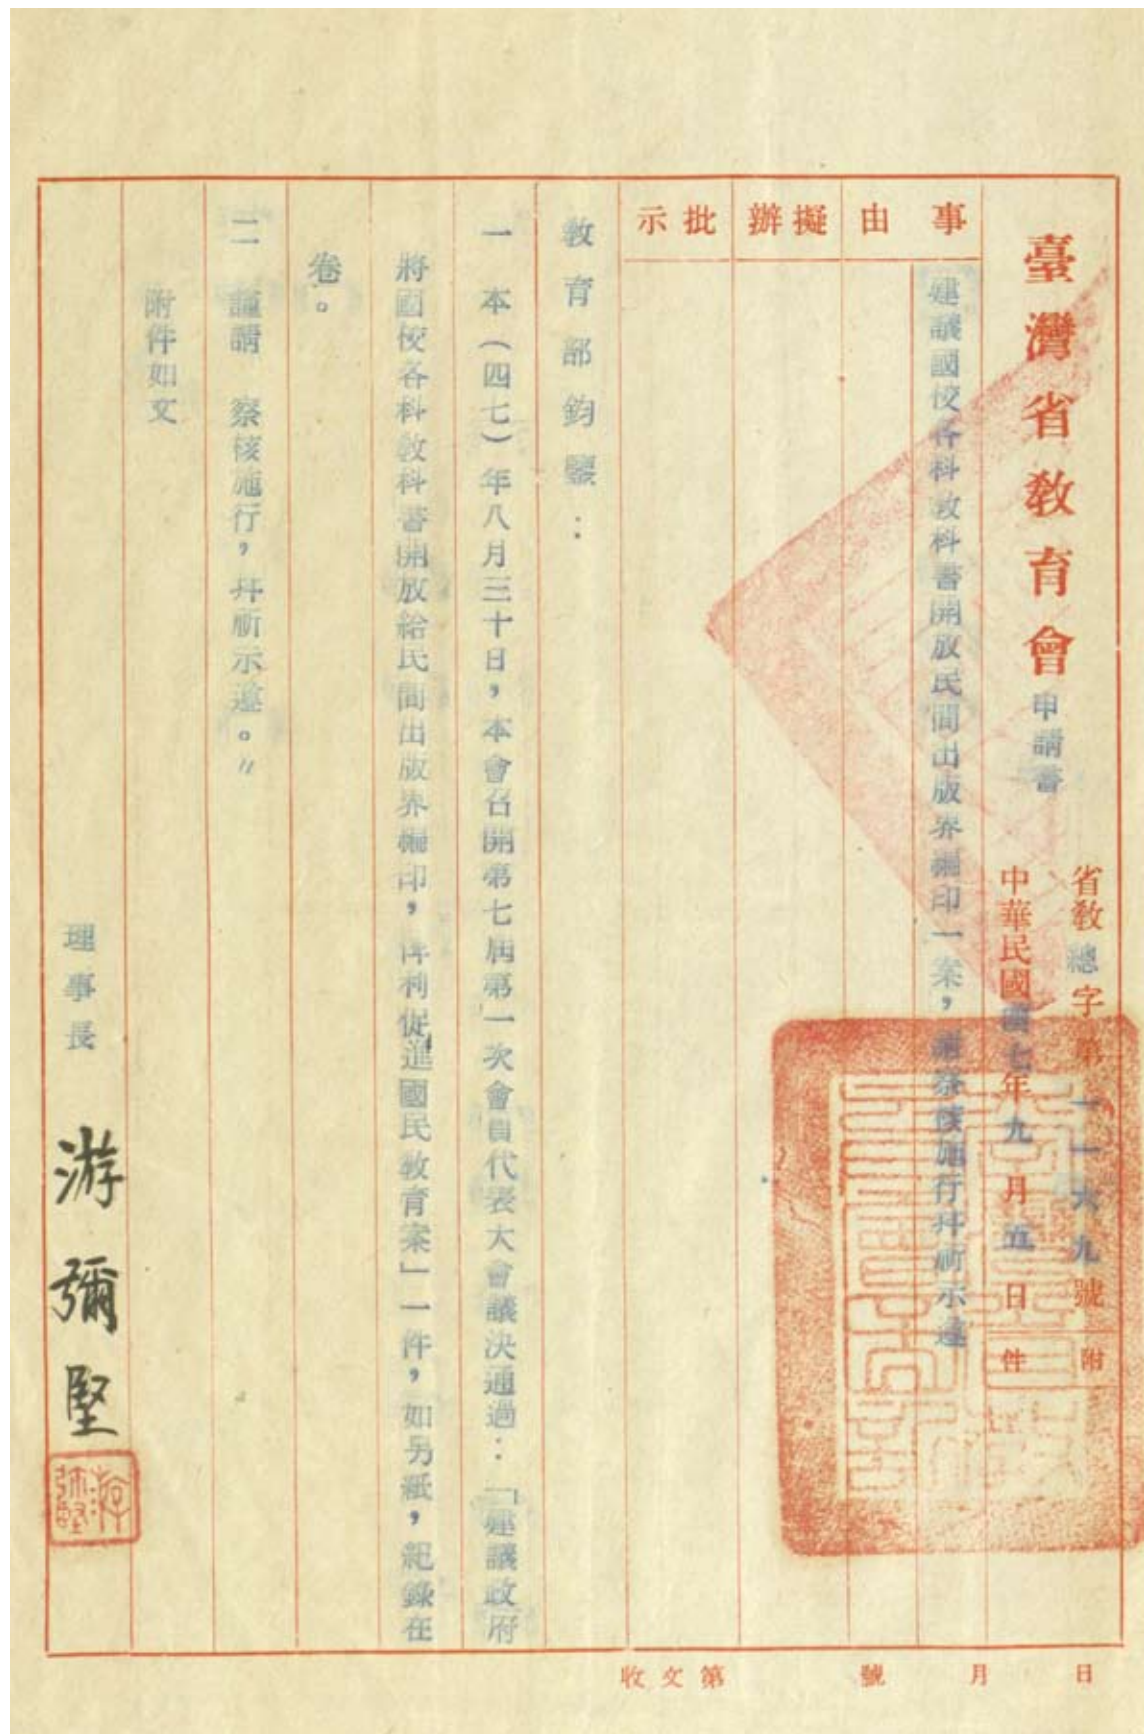 臺灣省教育會申請書
省教總字第一一六九號
中華民國四七年九月五日
附件
事由
建議國校各科教科書開放民間出版界編印一案，謹請察核施行并祈示遵
擬辦
批示
教育部鈞鑒：
一 本（四七）年八月三十日，本會召開第七屆第一次會員代表大會議決通過：「建議政府
將國校各科教科書開放給民間出版界編印，俾利促進國民教育案」一件，如另紙，紀錄在
卷。
二 謹請 察核施行，并祈示遵。〃
附件如文
理事長 游彌堅
游彌堅
收文第 號 月 日